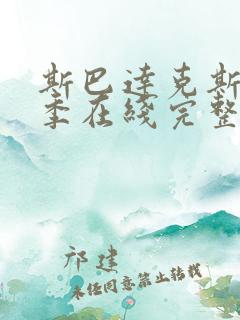 斯巴达克斯
季在线完整
祁建
未经同意禁止转载